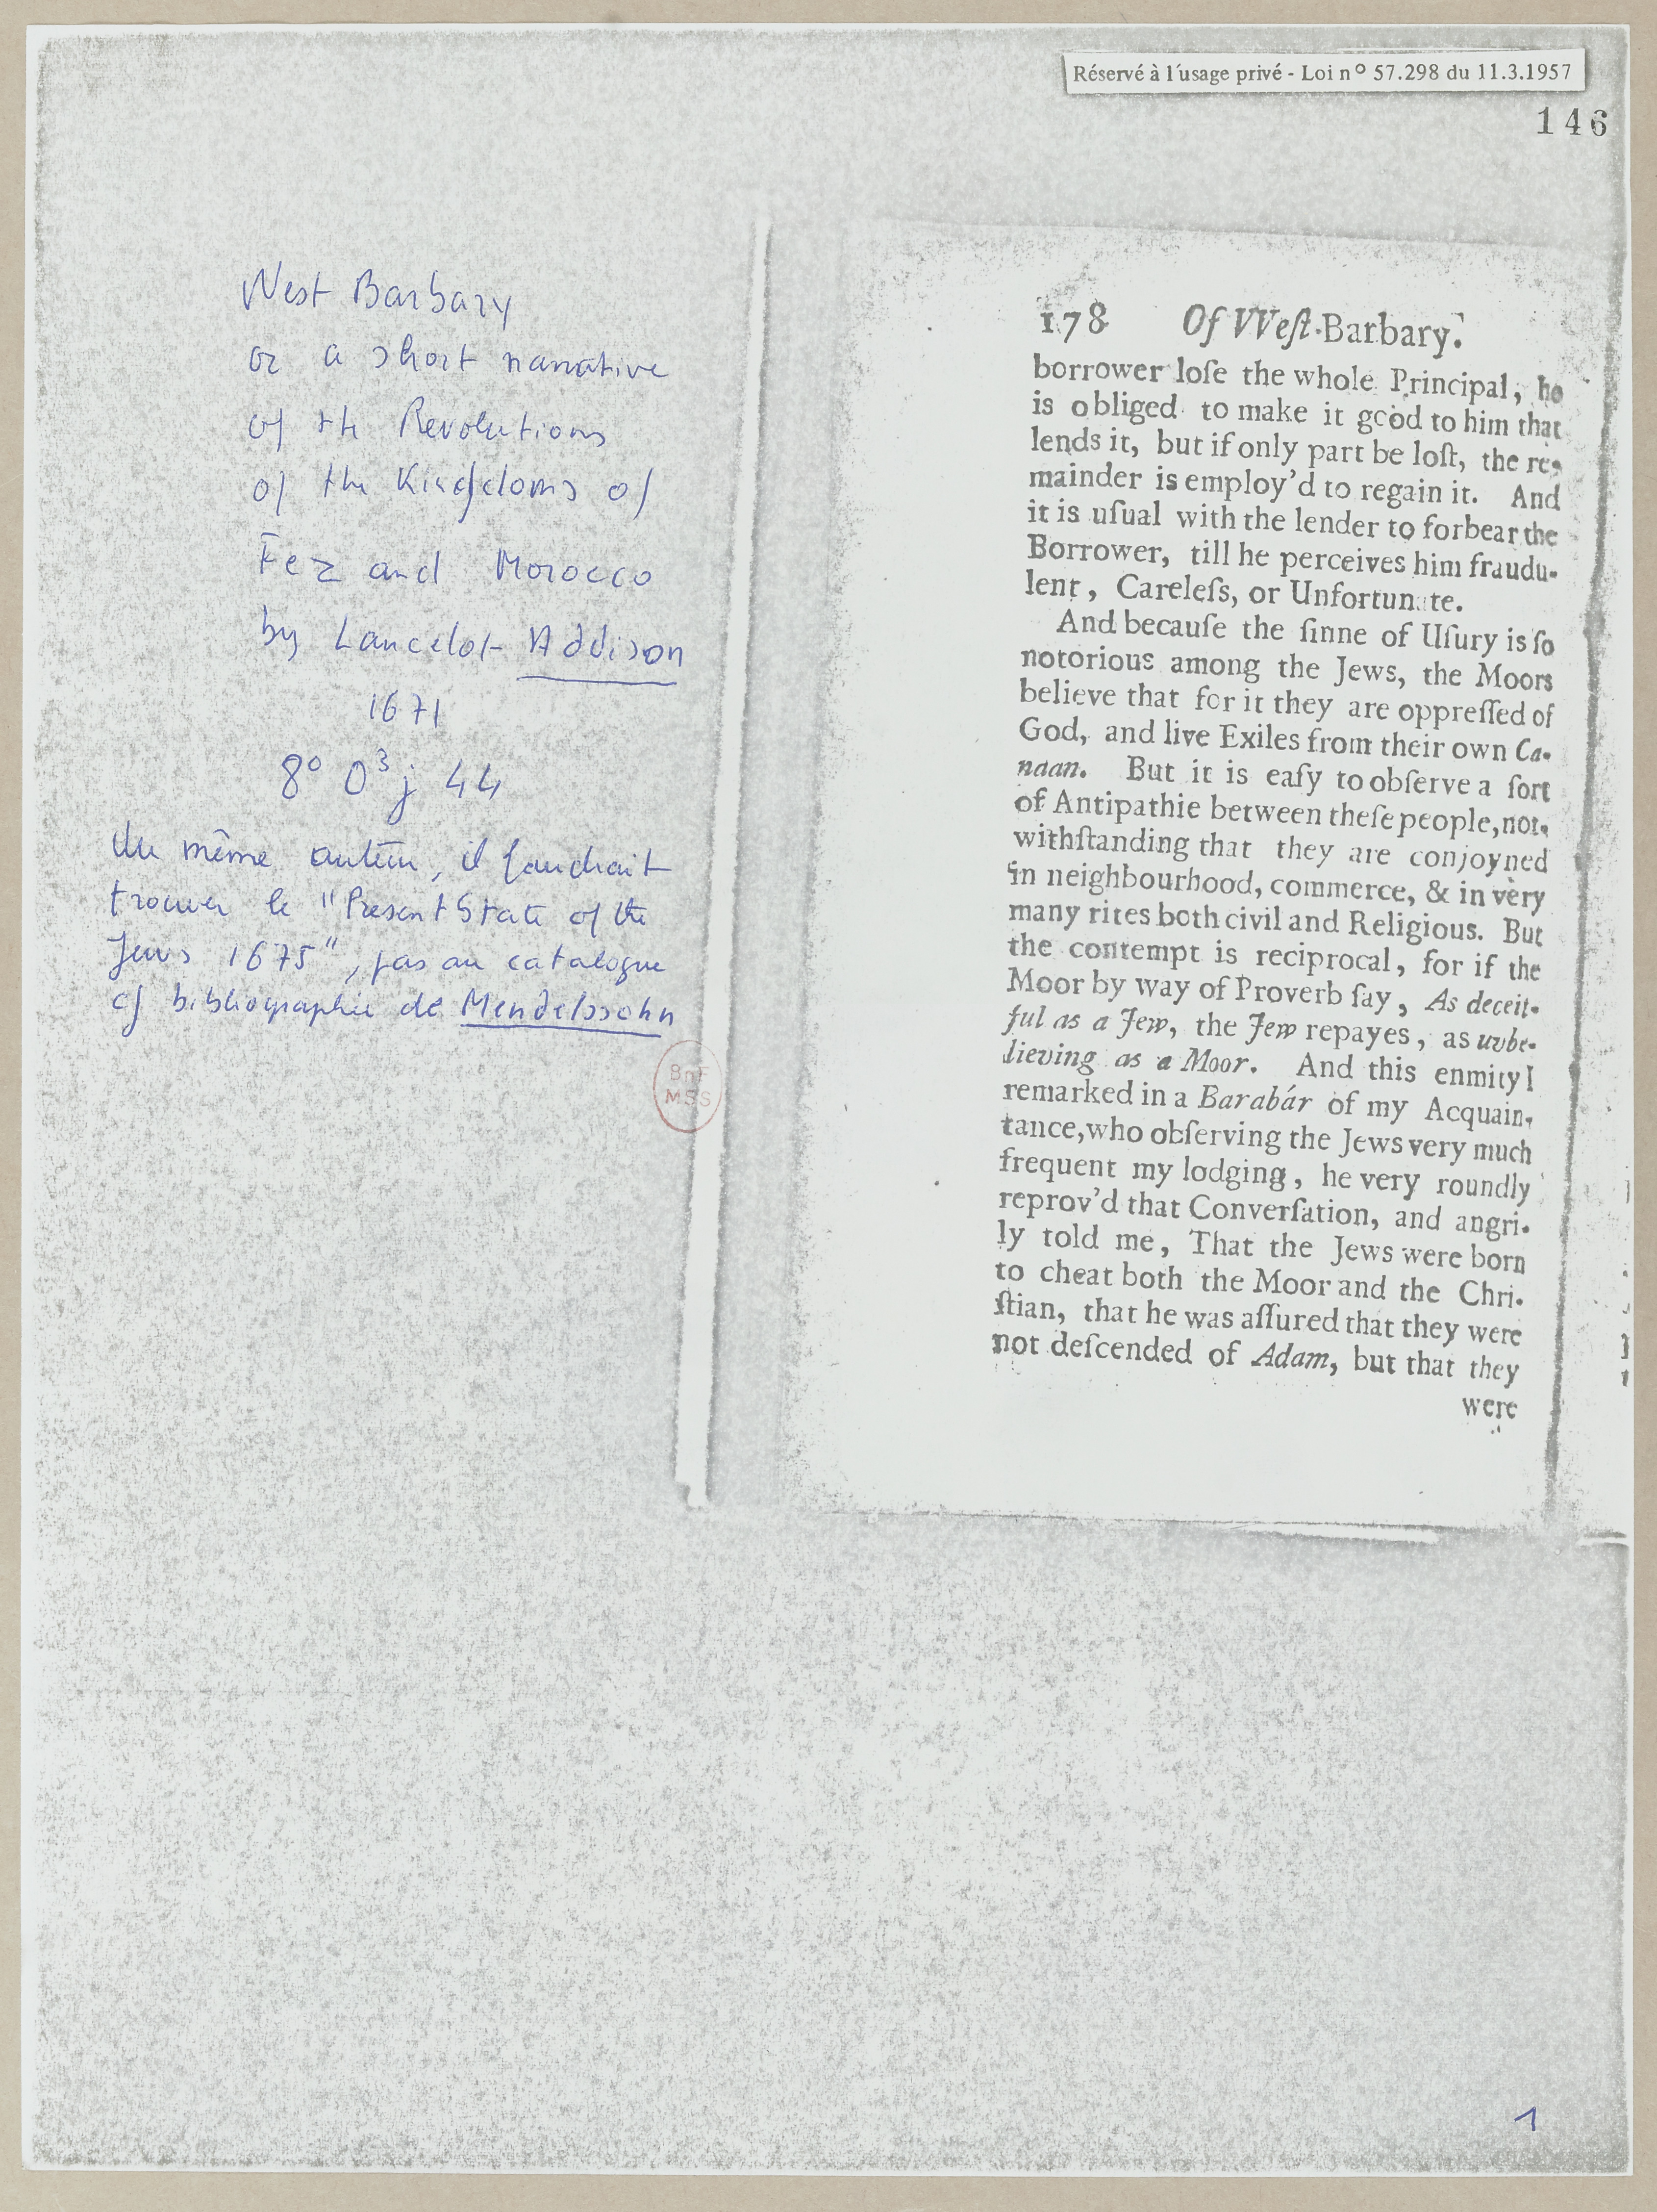 Réservé à l'usage privé - Loi nº 57.298 du 11.3.1957
146
West Barbary
or a short narrative
of the Revolutions
of the Kingdoms of
Fez and Morocco
by Lancelot Addison
1671
8º O³ j 44
Du même auteur, il faudrait
trouver le "Present State of the
Jews 1675", pas au catalogue
cf bibliographie de Mendelssohn
BnF
MSS
178 Of VVeſt-Barbary.
borrower loſe the whole Principal, he
is obliged to make it good to him that
lends it, but if only part be loſt, the re-
mainder is employ'd to regain it. And
it is uſual with the lender to forbear the
Borrower, till he perceives him fraudu-
lent, Careleſs, or Unfortunate.
And becauſe the ſinne of Uſury is ſo
notorious among the Jews, the Moors
believe that for it they are oppreſſed of
God, and live Exiles from their own Ca-
naan. But it is eaſy to obſerve a ſort
of Antipathie between theſe people, not-
withſtanding that they are conjoyned
in neighbourhood, commerce, & in very
many rites both civil and Religious. But
the contempt is reciprocal, for if the
Moor by way of Proverb ſay, As deceit-
ful as a Jew, the Jew repayes, as uvbe-
lieving as a Moor. And this enmity I
remarked in a Barabár of my Acquain-
tance, who obſerving the Jews very much
frequent my lodging, he very roundly
reprov'd that Converſation, and angri-
ly told me, That the Jews were born
to cheat both the Moor and the Chri-
ſtian, that he was aſſured that they were
not deſcended of Adam, but that they
were
1